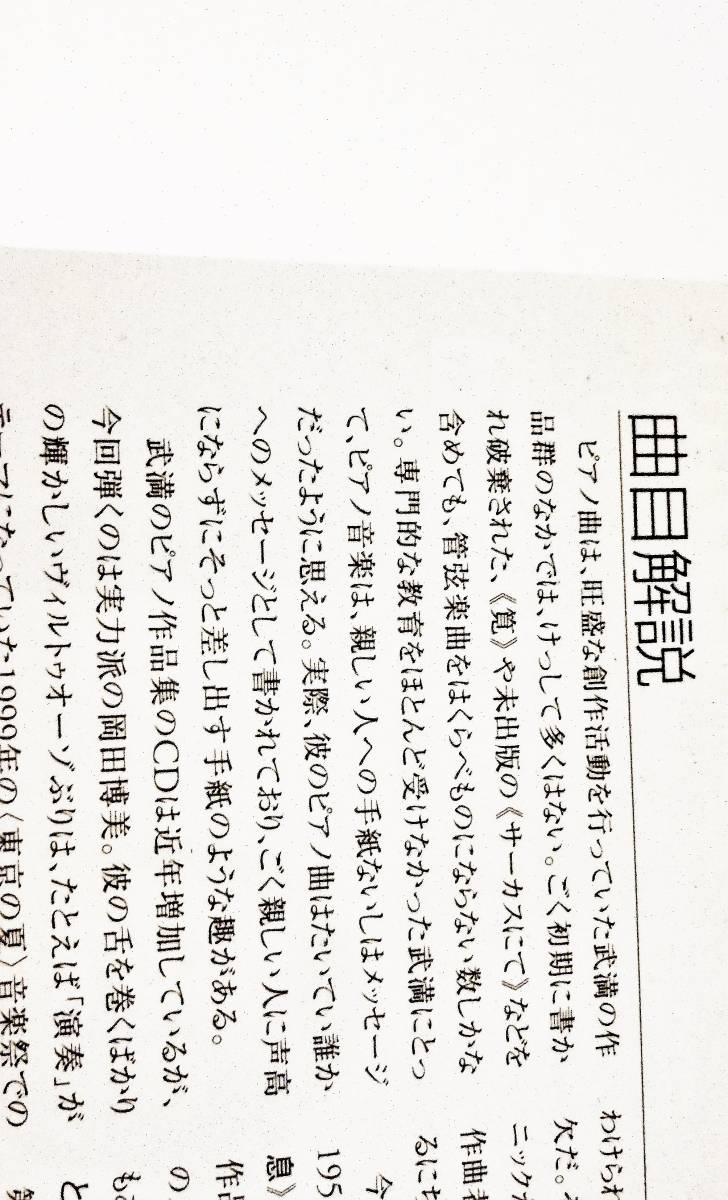 曲目解説
ピアノ曲は、旺盛な創作活動を行っていた武満の作
品群のなかでは、けっして多くはない。ごく初期に書か
れ破棄された、《筧》や未出版の《サーカスにて》などを
含めても、管弦楽曲をはくらべものにならない数しかな
い。専門的な教育をほとんど受けなかった武満にとっ
て、ピアノ音楽は、親しい人への手紙ないしはメッセージ
だったように思える。実際、彼のピアノ曲はたいてい誰か
へのメッセージとして書かれており、ごく親しい人に声高
にならずにそっと差し出す手紙のような趣がある。
武満のピアノ作品集のCDは近年増加しているが、
今回弾くのは実力派の岡田博美。彼の舌を巻くばかり
の輝かしいヴィルトゥオーゾぶりは、たとえば「演奏」が
テーマになっていた1999年の〈東京の夏〉音楽祭での
わけられ
欠だ。
ニック
作曲者
るに
今
195
息》
作品
の
も
と